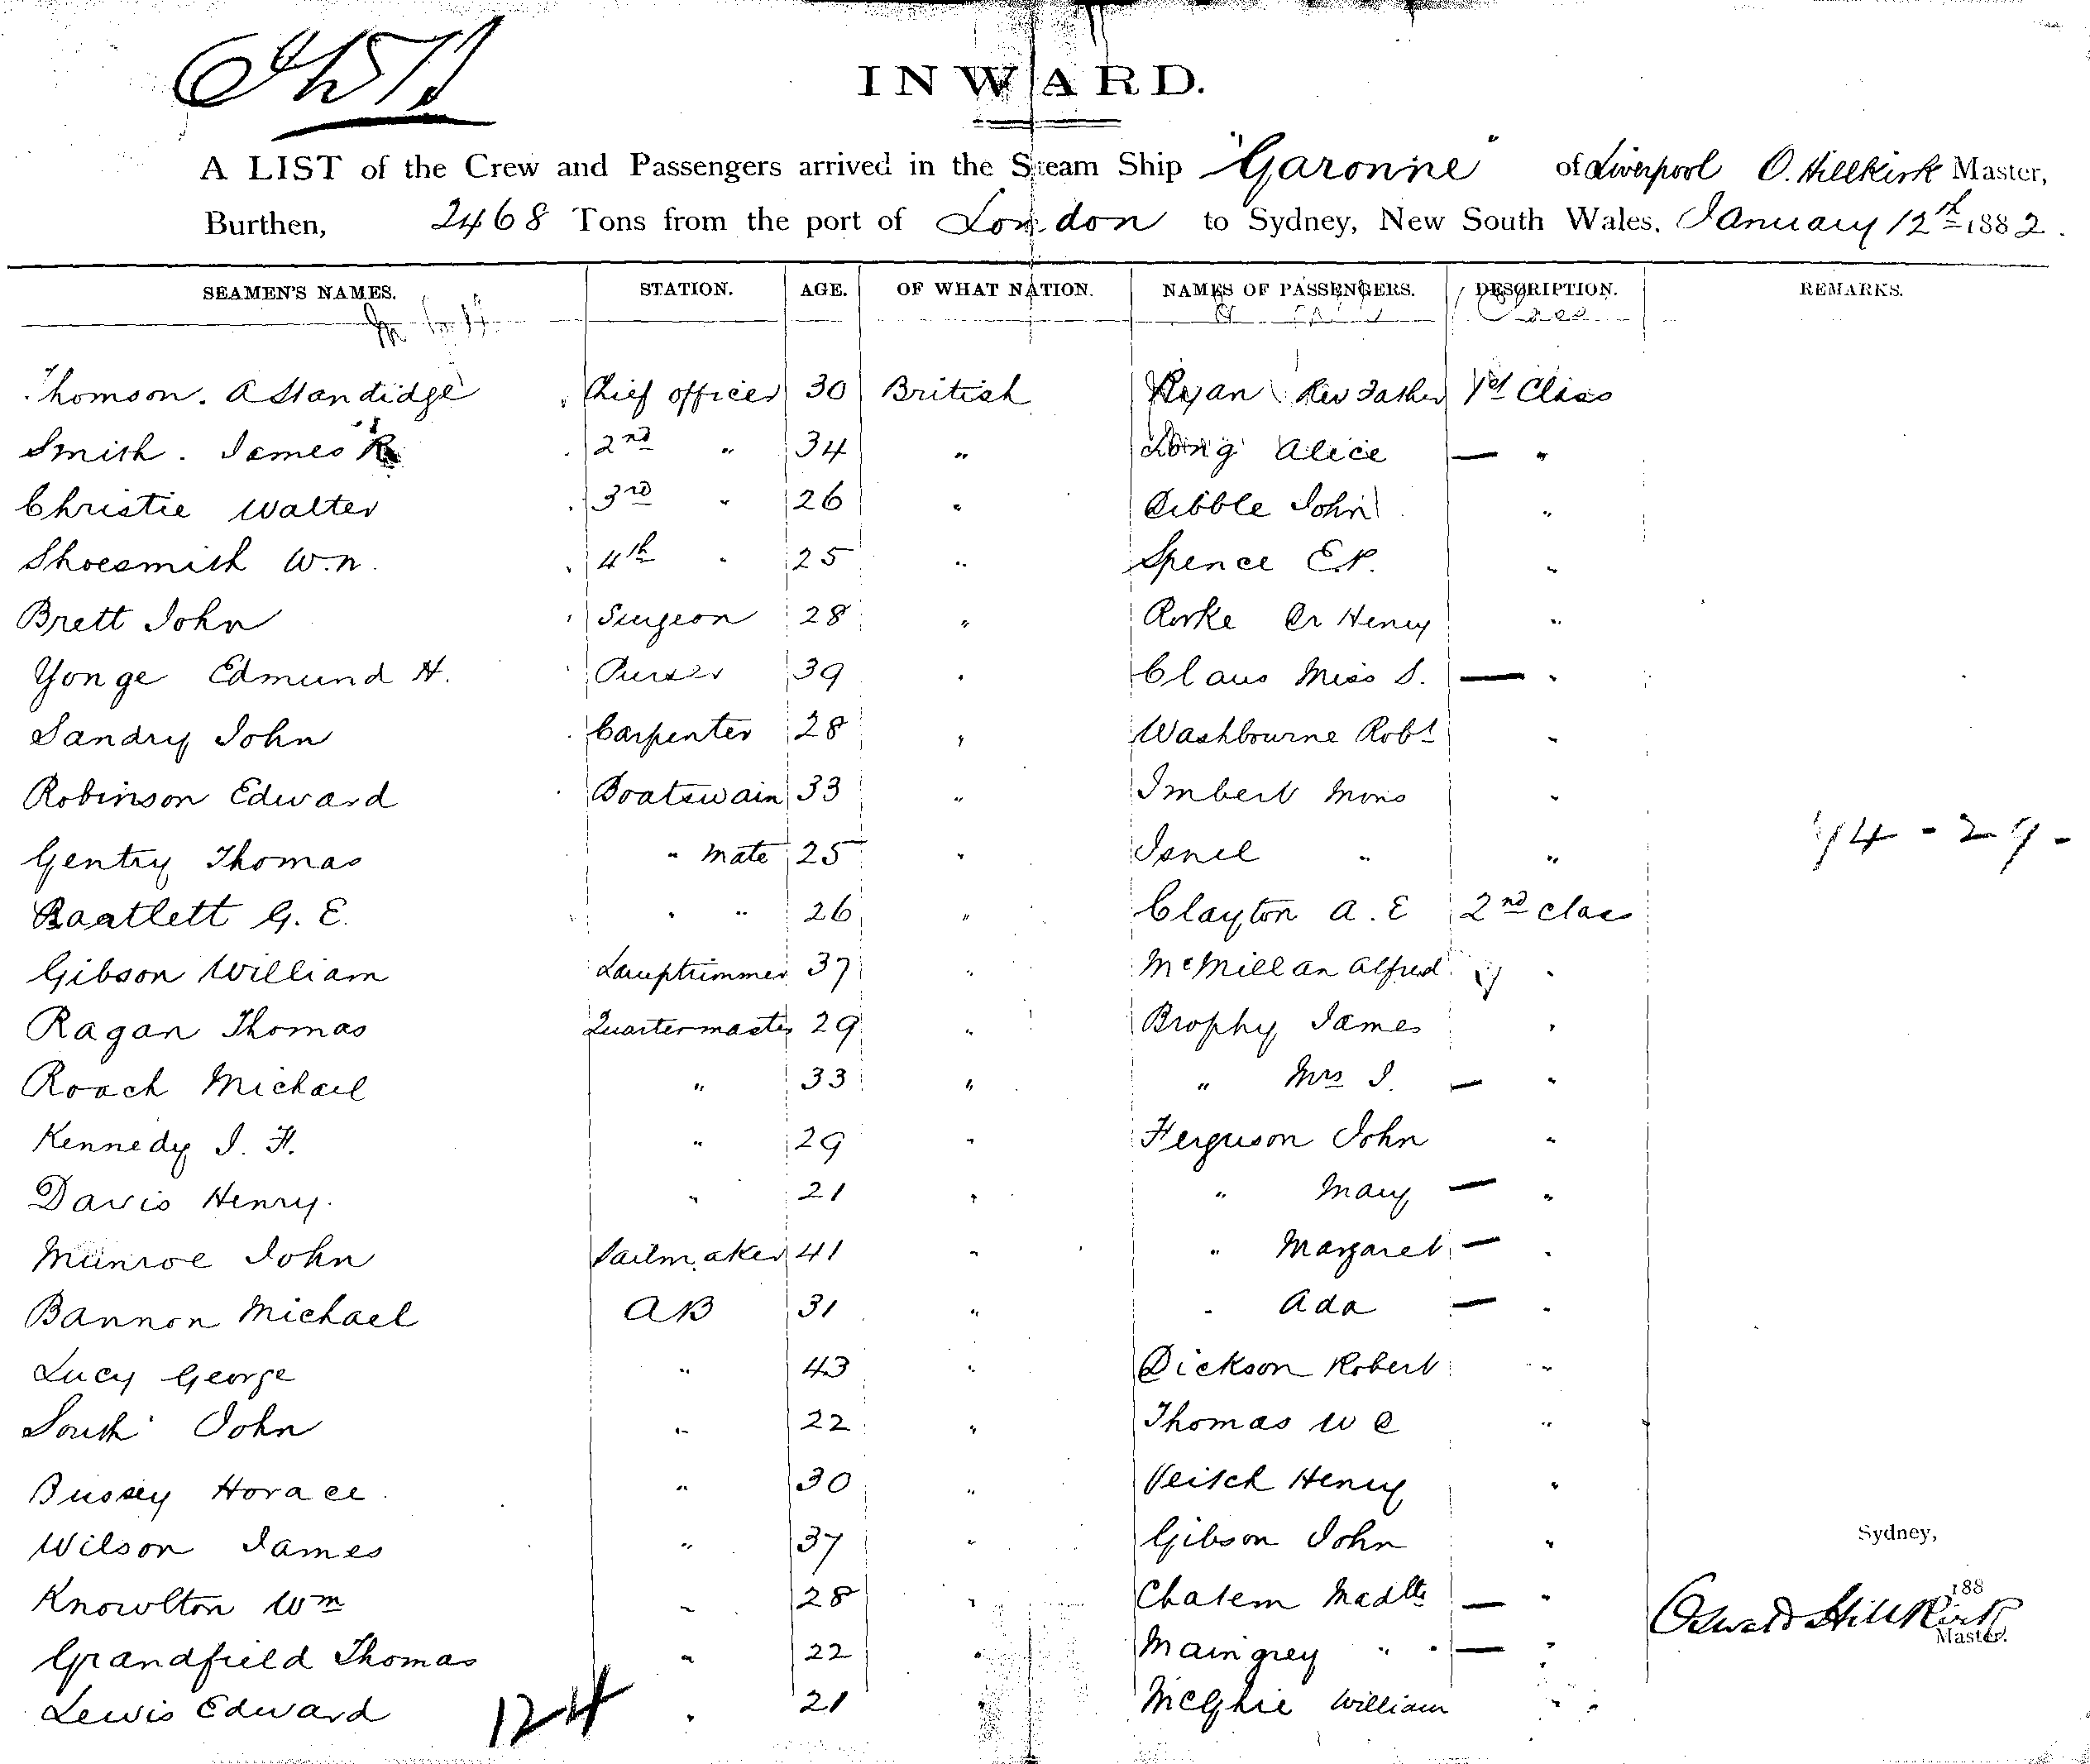 INWARD.
A LIST of the Crew and Passengers arrived in the Steam Ship "Garonne" of Liverpool O. Hillkirk Master,
Burthen, 2468 Tons from the port of London to Sydney, New South Wales, January 12th 1882.
SEAMEN'S NAMES. STATION. AGE. OF WHAT NATION. NAMES OF PASSENGERS. DESCRIPTION. REMARKS.
Thomson. A Standidge Chief officer 30 British Ryan Rev Father 1st Class
Smith. James R 2nd " 34 " Long Alice — "
Christie Walter 3rd " 26 " Dibble John "
Shoesmith W.N. 4th " 25 " Spence E.P. "
Brett John Surgeon 28 " Rorke Dr Henry "
Yonge Edmund H. Purser 39 " Claus Miss S. — "
Sandry John Carpenter 28 " Washbourne Robt "
Robinson Edward Boatswain 33 " Imbert Mons "
Gentry Thomas " Mate 25 " " "
74 - 29 -
Bartlett G. E. " " 26 " Clayton A. E 2nd class
Gibson William Lamptrimmer 37 " McMillan Alfred "
Ragan Thomas Quartermaster 29 " Brophy James "
Roach Michael " 33 " " Mrs J. — "
Kennedy J. F. " 29 " Ferguson John "
Davis Henry. " 21 " " Mary — "
Munroe John Sailmaker 41 " " Margaret — "
Bannon Michael AB 31 " " Ada — "
Lucy George " 43 " Dickson Robert "
South John " 22 " Thomas W C "
Bussey Horace " 30 " Veitch Henry "
Wilson James " 37 " Gibson John "
Sydney,
Knowlton Wm " 28 " Chatem Madlle — "
188
Oswald Hillkirk
Master.
Grandfield Thomas " 22 " Maingrey " — "
Lewis Edward " 21 " McGhie William "
124